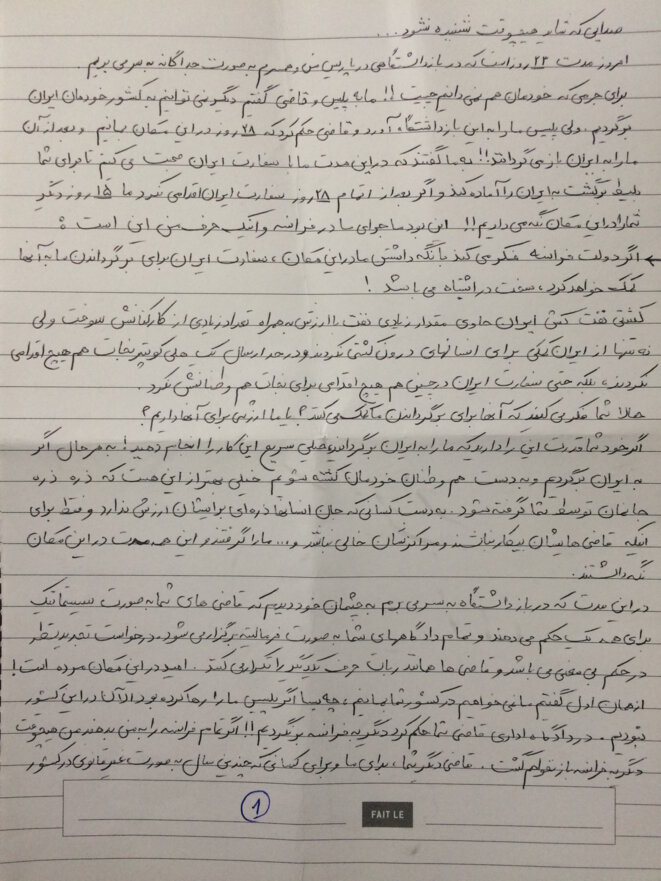 صدایی که شاید هیچوقت شنیده نشود...
امروز مدت ۲۲ روز است که در بازداشتگاهی در پاریس من و همسرم به صورت جداگانه به سر می بریم.
برای جرمی که خودمان هم نمی دانیم چیست!! ما به پلیس و قاضی گفتیم دیگر نمی توانیم به کشور خودمان ایران
برگردیم. ولی پلیس ما را به این بازداشتگاه آورد و قاضی حکم کرد که ۲۸ روز در این مکان بمانیم و بعد از آن
ما را به ایران باز می گردانند!!! به ما گفتند که در این مدت ما با سفارت ایران صحبت می کنیم تا برای شما
بلیط برگشت به ایران را آماده کند و اگر بعد از اتمام ۲۸ روز سفارت ایران اقدامی نکرد ما ۱۵ روز دیگر
شما را در این مکان نگه می داریم!!! این بود ماجرای ما در فرانسه و اینک حرف من این است:
← اگر دولت فرانسه فکر می کند با نگه داشتن ما در این مکان، سفارت ایران برای برگرداندن ما به آنها
کمک خواهد کرد، سخت در اشتباه می باشد!
کشتی نفت کش ایران حاوی مقدار زیادی نفت با ارزش به همراه تعداد زیادی از کارکنانش سوخت ولی
نه تنها از ایران کمکی برای انسانهای درون کشتی نکردند و در حد ارسال یک هلی کوپتر نجات هم هیچ اقدامی
نکردند، بلکه حتی سفارت ایران در چین هم هیچ اقدامی برای نجات هم وطنانش نکرد.
حالا شما فکر می کنید که آنها برای برگرداندن ما کمک می کنند؟ یا ما ارزشی برای آنها داریم؟
اگر خود شما قدرت این را دارید که ما را به ایران برگردانید خیلی سریع این کار را انجام دهید! به هر حال اگر
به ایران برگردیم و به دست هم وطنان خودمان کشته شویم خیلی بهتر از این هست که ذره ذره
جانمان توسط شما گرفته شود. به دست کسانی که جان انسانها ذره ای برایشان ارزش ندارد و فقط برای
اینکه قاضی هایشان بیکار نباشند و مراکزشان خالی نباشد و... ما را گرفتند و این همه مدت در این مکان
نگه داشتند.
در این مدت که در بازداشتگاه به سر می برم به چشمان خود دیدم که قاضی های شما به صورت سیستماتیک
برای همه یک حکم می دهند و تمام دادگاههای شما به صورت فرمالیته برگزار می شود. درخواست تجدید نظر
در حکم بی معنی می باشد و قاضی ها همانند ربات حرف یکدیگر را تکرار می کنند. امید در این مکان مرده است!
از همان اول گفتیم ما نمی خواهیم در کشور شما بمانیم، چه بسا اگر پلیس ما را رها کرده بود الآن در این کشور
نبودیم. در دادگاه اداری قاضی شما حکم کرد دیگر به فرانسه برنگردیم!!! اگر تمام فرانسه را به من بدهند من هیچوقت
دیگر به فرانسه باز نخواهم گشت. قاضی دیگر شما، برای ما و برای کسانی که چندین سال به صورت غیر قانونی در کشور
1
FAIT LE